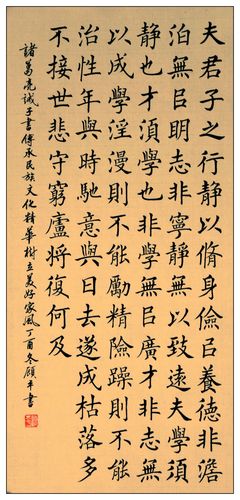 夫君子之行静以脩身儉㠯養德非澹
泊無㠯明志非寧静無以致遠夫學須
静也才須學也非學無㠯廣才非志無
以成學淫漫則不能勵精險躁則不能
治性年與時馳意與日去遂成枯落多
不接世悲守窮廬將復何及
諸葛亮誡子書傳承民族文化精華樹立美好家風丁酉冬顧平書